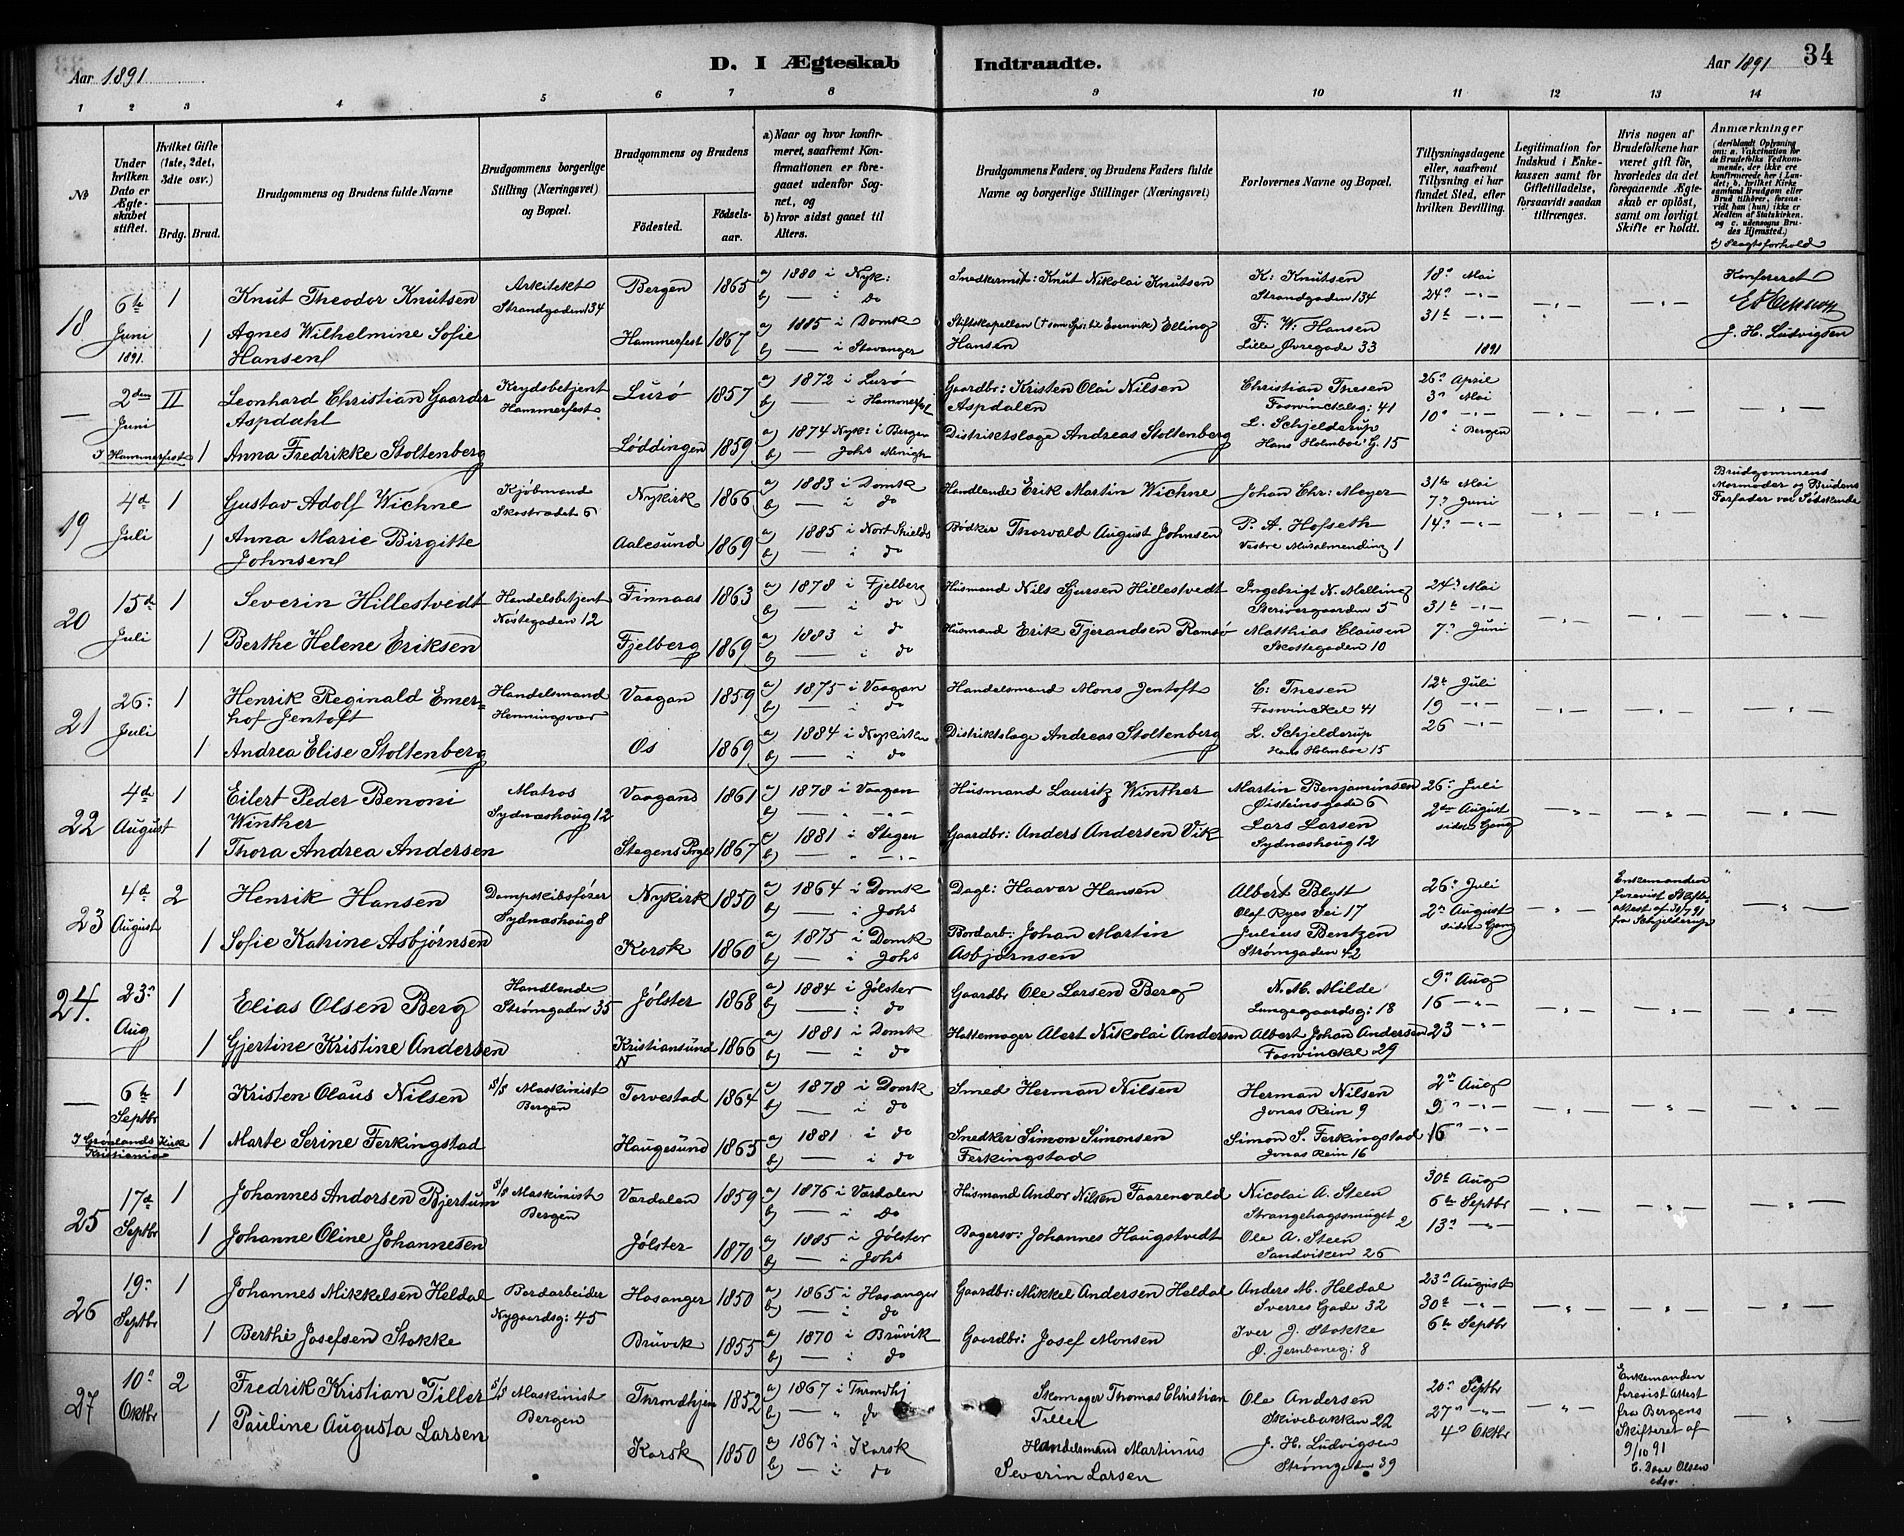 Aar 1891
D. I Ægteskab Indtraadte.
Aar 1891
34
1 2 3 4 5 6 7 8 9 10 11 12 13 14
No
Under hvilken Dato er Ægteskabet stiftet.
Hvilket Gifte (1ste, 2det, 3die osv.)
Brdg. Brud.
Brudgommens og Brudens fulde Navne
Brudgommens borgerlige Stilling (Næringsvei) og Bopæl.
Brudgommens og Brudens
Fødested.
Fødselsaar.
a) Naar og hvor konfirmeret, saafremt Konfirmationen er foregaaet udenfor Sognet, og
b) hvor sidst gaaet til Alters.
Brudgommens Faders og Brudens Faders fulde Navne og borgerlige Stillinger (Næringsvei)
Forlovernes Navne og Bopæl.
Tillysningsdagene eller, saafremt Tillysning ei har fundet Sted, efter hvilken Bevilling.
Legitimation for Indskud i Enkekassen samt for Giftetilladelse, forsaavidt saadan tiltrænges.
Hvis nogen af Brudefolkene har været gift før, hvorledes da det foregaaende Ægteskab er opløst, samt om lovligt Skifte er holdt.
Anmærkninger (deriblandt Oplysning om: a. Vakcination for de Brudefolks Vedkommende, der ikke ere konfirmerede her i Landet; b. hvilket Kirkesamfund Brudgom eller Brud tilhører, forsaavidt han (hun) ikke er Medlem af Statskirken, og c. udensogns Brudes Hjemsted.)
d) Slægtsforhold
18 6te Juni 1891. 1 Knut Theodor Knutsen Arkitekt Strandgaden 134 Bergen 1865 a) 1880 i Nyk: b) — i do Snedkermst: Knut Nikolai Knutsen K: Knutsen Strandgaden 134 18de Mai 24de —
Konfereret
J. H. Ludvigsen
1 Agnes Wilhelmine Sofie Hansen Hammerfest 1867 a) 1885 i Domk b) — i Stavanger Stiftskapellan Elling Hansen F: W: Hansen Lille Øvregade 33 31te — 1891
— 2den Juni I Hammerfest II Leonhard Christian Gaarder Aspdahl Krydsbetjent Hammerfest Lurø 1857 a) 1872 i Lurø b) — i Hammerfest Gaardbr: Kristen Olai Nilsen Aspdalen Christian Thesen Foswinckelsg: 41 26de April 3de Mai 10de — i Bergen
1 Anna Fredrikke Stoltenberg Løddingen 1859 a) 1874 Nyk: i Bergen b) — Johs Menigh Distriktslæge Andreas Stoltenberg L. Schjelderup Hans Holmboe G. 15
19 4de Juli 1 Gustav Adolf Wichne Kjøbmand Skostrædet 6 Nykirk 1866 a) 1883 i Domk b) — i do Handlende Erik Martin Wichne Johan Chr: Meyer 31te Mai 7de Juni 14de —
Brudgommens Mormoder og Brudens Farfader var Sødskende
1 Anna Marie Birgitte Johnsen Aalesund 1869 a) 1885 i Nort Shields b) — i do Bødker Thorvald August Johnsen P. A. Hofseth Vestre Muralmending 1
20 15de Juli 1 Severin Hillestvedt Handelsbetjent Nøstegaden 12 Finnaas 1863 a) 1878 i Fjelberg b) — i do Husmand Nils Sjursen Hillestvedt Ingebrigt N. Melling Skrivergaarden 5 24de Mai 31te — 7de Juni
1 Berthe Helene Eriksen Fjelberg 1869 a) 1883 i do b) — i do Husmand Erik Tjerandsen Ramsø Matthias Clausen Skottegaden 10
21 26: Juli 1 Henrik Reginald Emerhof Jentoft Handelsmand Henningsvær Vaagan 1859 a) 1875 i Vaagan b) — i do Handelsmand Mons Jentoft C: Thesen Foswinckel 41 12te Juli 19 — 26 —
1 Andrea Elise Stoltenberg Os 1869 a) 1884 i Nykirken b) — i do Distriktslæge Andreas Stoltenberg L. Schjelderup Hans Holmboe 15
22 4de August 1 Eilert Peder Benoni Winther Matros Sydnæshoug 12 Vaagand 1861 a) 1878 i Vaagan Husmand Lauritz Winther Martin Benjaminsen Øisteinsgade 6 26de Juli 2den August sidste Gang
1 Thora Andrea Andersen Stegens Prgl 1867 a) 1881 i Stegen Gaardbr: Anders Andersen Vik Lars Larsen Sydnæshoug 12
23 4de August 2 Henrik Hansen Dampskibsfører Sydnæshoug 8 Nykirk 1850 a) 1864 i Domk b) — i Johs Dagl: Haavar Hansen Albert Blytt Olaf Ryes Vei 17 26de Juli 2den August sidste Gang
Enkemanden forevist Skifteattest af 31/7 91 fra Schjelderup
1 Sofie Katrine Asbjørnsen Korsk 1860 a) 1875 i Domk b) — i Johs Bordarb: Johan Martin Asbjørnsen Julius Bentzen Strømgaden 42
24. 23de Aug 1 Elias Olsen Berg Handlende Strømgaden 35 Jølster 1868 a) 1884 i Jølster b) — : do Gaardbr Ole Larsen Berg N. M. Milde Lungegaardsg: 18 9de Aug 16 — 23 —
1 Gjertine Kristine Andersen Kristiansund N 1866 a) 1881 i Domk b) — i do Hattemager Alert Nikolai Andersen Albert Johan Andersen Foswinckel 29
— 6te Septbr I Grønlands Kirk Kristiania 1 Kristen Olaus Nilsen S/S Maskinist Bergen Torvestad 1864 a) 1878 i Domk b) — i do Smed Herman Nilsen Herman Nilsen Jonas Rein 9 2den Aug 9de — 16de —
1 Marte Serine Ferkingstad Haugesund 1865 a) 1881 i do b) — i do Snedker Simon Simonsen Ferkingstad Simon S. Ferkingstad Jonas Rein 16
25 17de Septbr 1 Johannes Andorsen Bjertum S/S Maskinist Bergen Værdalen 1859 a) 1876 i Værdalen b) — i Do Husmand Andor Nilsen Faarenvald Nicolai A. Steen Strangehagssmuget 2 30te Aug 6te Septbr 13de —
1 Johanne Oline Johannesen Jølster 1870 a) 1885 i Jølster b) — i Johs Bagersv: Johannes Haugstvedt Ole A. Steen Sandviken 26
26 19de Septbr 1 Johannes Mikkelsen Heldal Bordarbeider Nygaardsg: 45 Hosanger 1850 a) 1865 i Hosanger b) — i do Gaardbr: Mikkel Andersen Heldal Anders M. Heldal Sverres Gade 32 23de August 30te — 6te Septbr
1 Berthe Josefsen Stokke Bruvik 1855 a) 1870 i Bruvik b) — i do Gaardbr: Josef Monsen Iver J. Stokke Ø. Jernbaneg: 8
27 10de Oktbr 2 Fredrik Kristian Tiller S/S Maskinist Bergen Throndhjem 1852 a) 1867 i Throndhj b) — do Skomager Thomas Christian Tiller Ole Andersen Skivebakken 22 20de Septbr 27de — 4de Oktbr
Enkemanden forevist Attest fra Bergens Skifteret af 9/10 91 C. Daae Olsen edsv.
1 Pauline Augusta Larsen Korsk 1850 a) 1867 i Korsk b) — i do Handelsmand Martinus Severin Larsen J. H. Ludvigsen Strømgaden 39